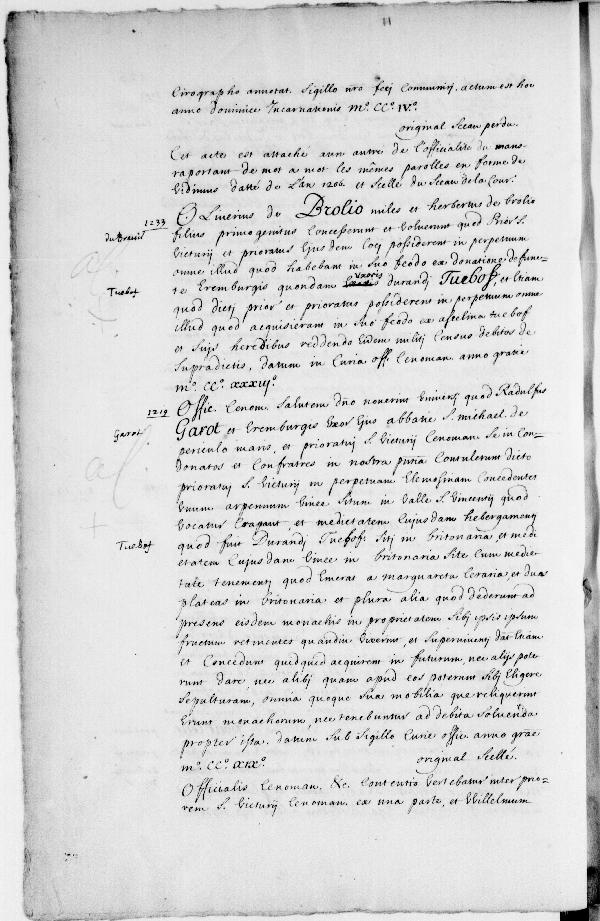 11
Cirographo annotat. Sigillo nro fecj Communirj. actum est hoc
anno dominice Incarnationis Mo. CCo. IVo.
original Sceau perdu.
Cet acte est attaché aun autre de l'officialité du mans
raportant de mot a mot les mêmes parolles en forme de
Vidimus datté de L'an 1206. et Scellé du Sceau de la Cour.
1233
du Breuil
OLiverius de Brolio miles et herbertus de brolio
filius primogenitus Concesserunt et Voluerunt quod Prior S.
Victurij et prioratus Ejusdem Locj possiderent in perpetuum
omne illud quod habebant in Suo feodo ex donatione defunc-
te Eremburgis quondam Uxoris durandj Tuebof, et Etiam
Tuebof
quod dictj prior et prioratus possiderent in perpetuum omne
illud quod acquisierant in Suo feodo ex ascelina tuebof
et Suis heredibus reddendo Eidem militj Census debitos de
Supradictis, datum in Curia offi Cenoman. anno gratie
Mo. CCo. XXXIIIo.
1219
Offic. Cenom. Salutem dno noverint Universj quod Radulfus
Garot
Garot et Eremburgis Uxor Ejus abbatie S. michael. de
periculo maris, et prioratuj S. Victurij Cenoman. Se in Con-
donatos et Confratres in nostra Contulerunt dicto
prioratuj S. Victurij in perpetuam Elemosinam Concedentes
Unum arpennum Vinee Situm in Valle S. Vincentij quod
Vocatur Eragant, et medietatem Cujusdam hebergamentj
Tuebof
quod fuit Durandj Tuebof. Sitj in britonaria, et medi
etatem Cujusdam Vinee in britonaria Site Cum medie-
tate tenementj quod Emeras a Margareta Ceraria, et duas
plateas in britonaria et plura alia quod dederunt ad
presens eisdem monachis in proprietatem Sibj ipsis ipsum
fructum retinentes quandiu Vixerint, et Supervivent) dant Etiam
et Concedunt quidquid acquirent in futurum, nec alijs pote
runt dare, nec alibj quam apud eos poterunt Sibj Eligere
Sepulturam, omnia quoque Sua mobilia que reliquerint
Erunt monachorum, nec tenebuntur ad debita Solvenda
propter ista. datum Sub Sigillo Curie offic. anno grae
Mo. CCo. XIXo.
original Scellé.
Officialis Cenoman. &c. Contentio Vertebatur inter prio-
rem S. Victurij Cenoman. ex una parte, et Willelmum